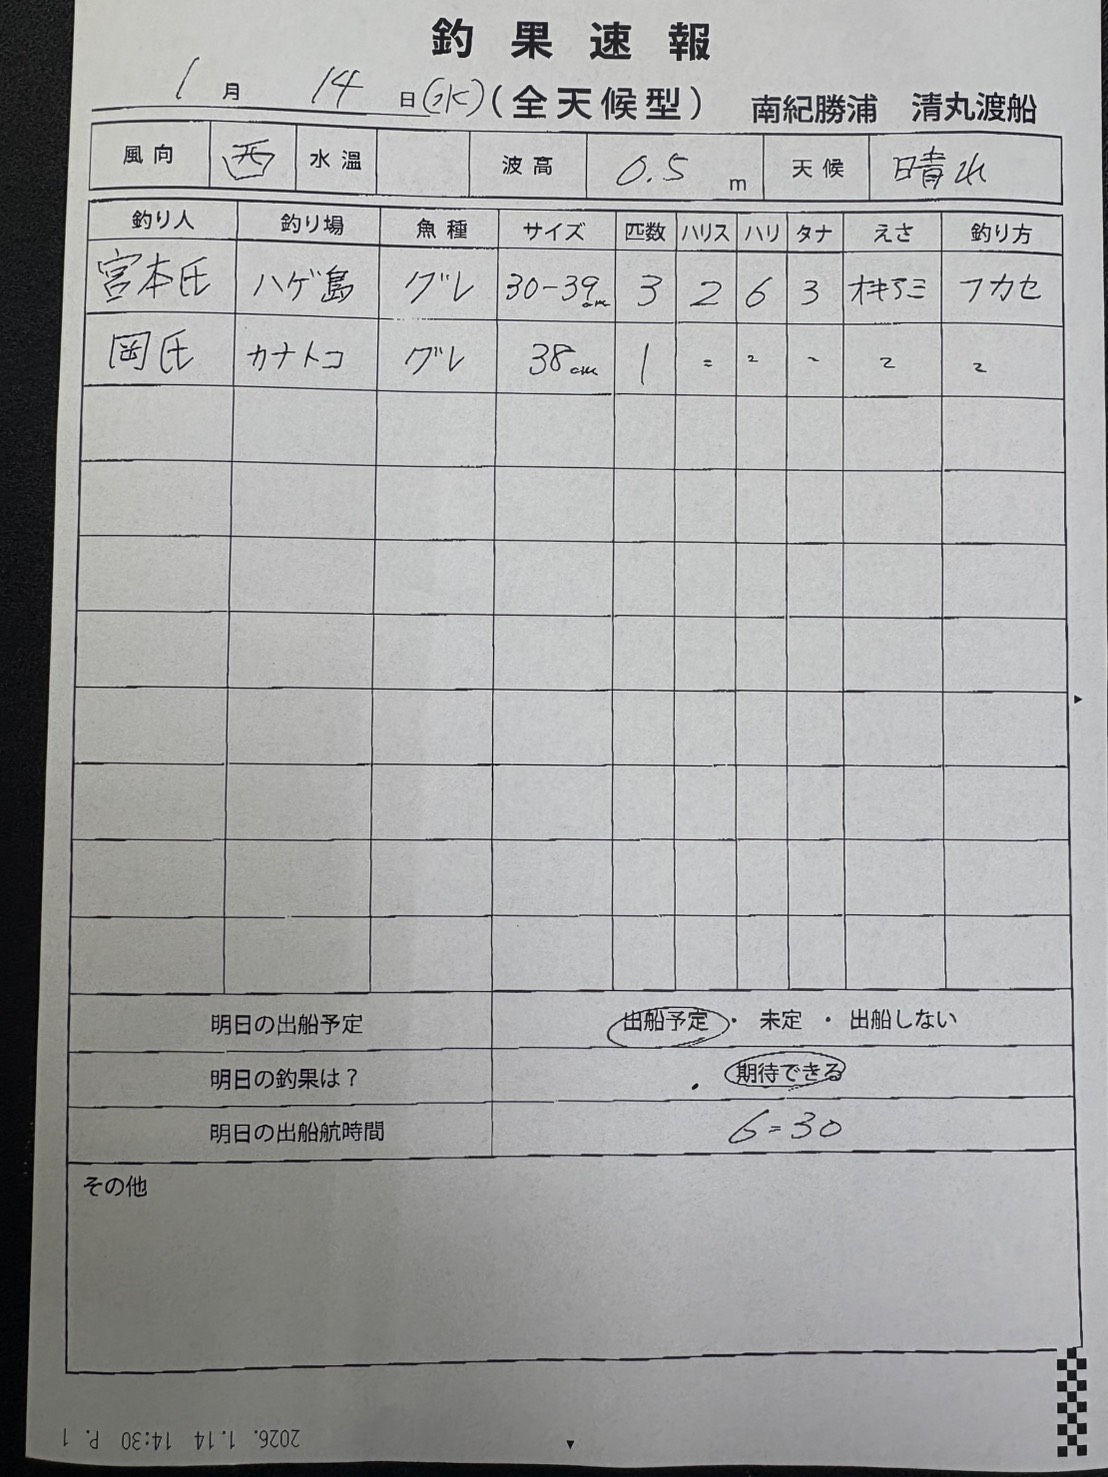 釣果速報
1月 14日(水)(全天候型) 南紀勝浦 清丸渡船
風向 西 水温 波高 0.5 m 天候 晴れ
釣り人 釣り場 魚種 サイズ 匹数 ハリス ハリ タナ えさ 釣り方
宮本氏 ハゲ島 グレ 30-39cm 3 2 6 3 オキアミ フカセ
岡氏 カナトコ グレ 38cm 1 〃 〃 〃 〃 〃
明日の出船予定 出船予定・未定・出船しない
明日の釣果は? 期待できる
明日の出船航時間 6=30
その他
2026. 1.14 14:30 P. 1